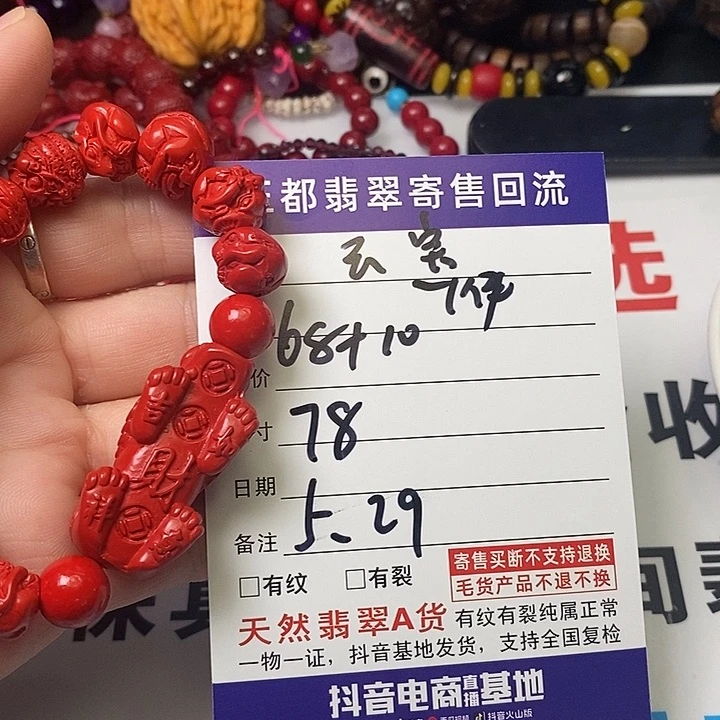 都翡翠寄售回流
云宾
7件
价 68+10
寸 78
日期 5.29
备注
□有纹 □有裂
寄售买断不支持退换
毛货产品不退不换
天然翡翠A货 有纹有裂纯属正常
一物一证，抖音基地发货，支持全国复检
抖音电商直播基地
抖音火山版
財
吉
祥
选
收
间